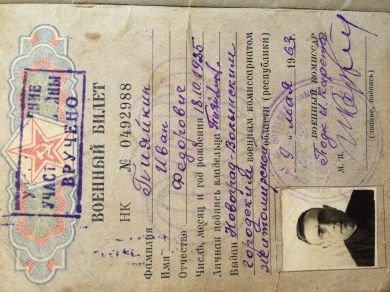 УДОСТОВЕРЕНИЕ
УЧАСТНИКА ВОЙНЫ
ВРУЧЕНО
ВОЕННЫЙ БИЛЕТ
НК № 0492988
Фамилия
Имя Иван
Отчество Федорович
Число, месяц и год рождения 18.10.1925
Личная подпись владельца
Выдан Новоград-Волынским
городским военным комиссариатом
Житомирской области (республики)
"9" мая 1964 г.
ВОЕННЫЙ КОМИССАР
М. П.
(звание, подпись)